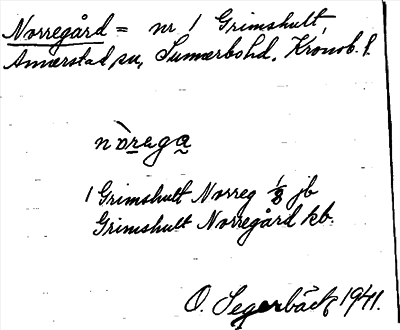 Norregård = nr 1 Grimshult,
Annerstad sn, Sunnerbo hd, Kronob. l.
nòrega
1 Grimshult Norreg 1/8 jb
Grimshult Norregård kb.
O. Segerbäck 1941.